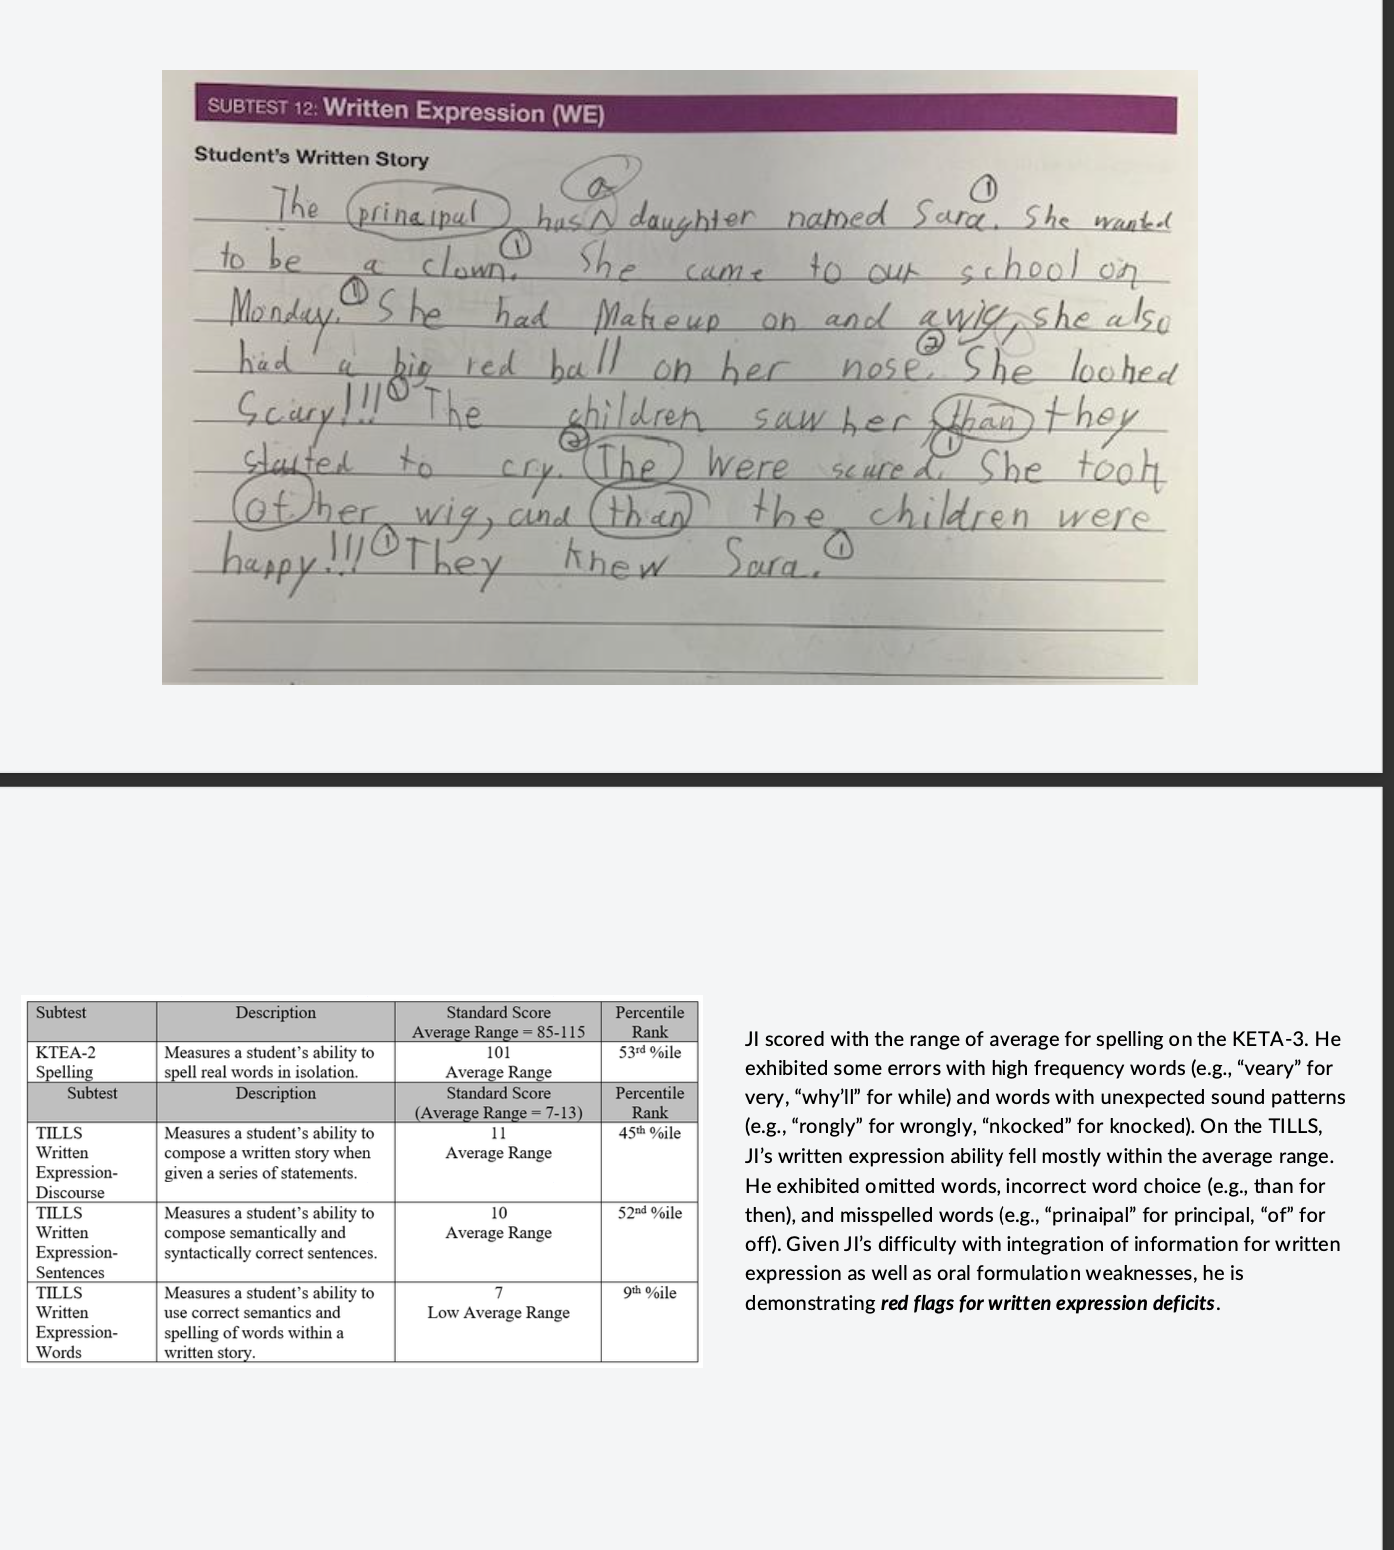 SUBTEST 12: Written Expression (WE)
Student's Written Story
a 1
The prinaipal has daughter named Sara. She wanted
1
to be a clown. She came to our school on
1
Monday. She had Makeup on and a wig, she also
2
had a big red ball on her nose. She looked
1
Scary!!! The children saw her than they
2 1
started to cry. The were scared. She took
of her wig, and than the children were
1 1
happy!!! They knew Sara.
Subtest Description Standard Score Percentile
Average Range = 85-115 Rank
KTEA-2 Measures a student's ability to 101 53rd %ile
Spelling spell real words in isolation. Average Range
Subtest Description Standard Score Percentile
(Average Range = 7-13) Rank
TILLS Measures a student's ability to 11 45th %ile
Written compose a written story when Average Range
Expression- given a series of statements.
Discourse
TILLS Measures a student's ability to 10 52nd %ile
Written compose semantically and Average Range
Expression- syntactically correct sentences.
Sentences
TILLS Measures a student's ability to 7 9th %ile
Written use correct semantics and Low Average Range
Expression- spelling of words within a
Words written story.
JI scored with the range of average for spelling on the KETA-3. He
exhibited some errors with high frequency words (e.g., “veary” for
very, “why’ll” for while) and words with unexpected sound patterns
(e.g., “rongly” for wrongly, “nkocked” for knocked). On the TILLS,
JI’s written expression ability fell mostly within the average range.
He exhibited omitted words, incorrect word choice (e.g., than for
then), and misspelled words (e.g., “prinaipal” for principal, “of” for
off). Given JI’s difficulty with integration of information for written
expression as well as oral formulation weaknesses, he is
demonstrating red flags for written expression deficits.